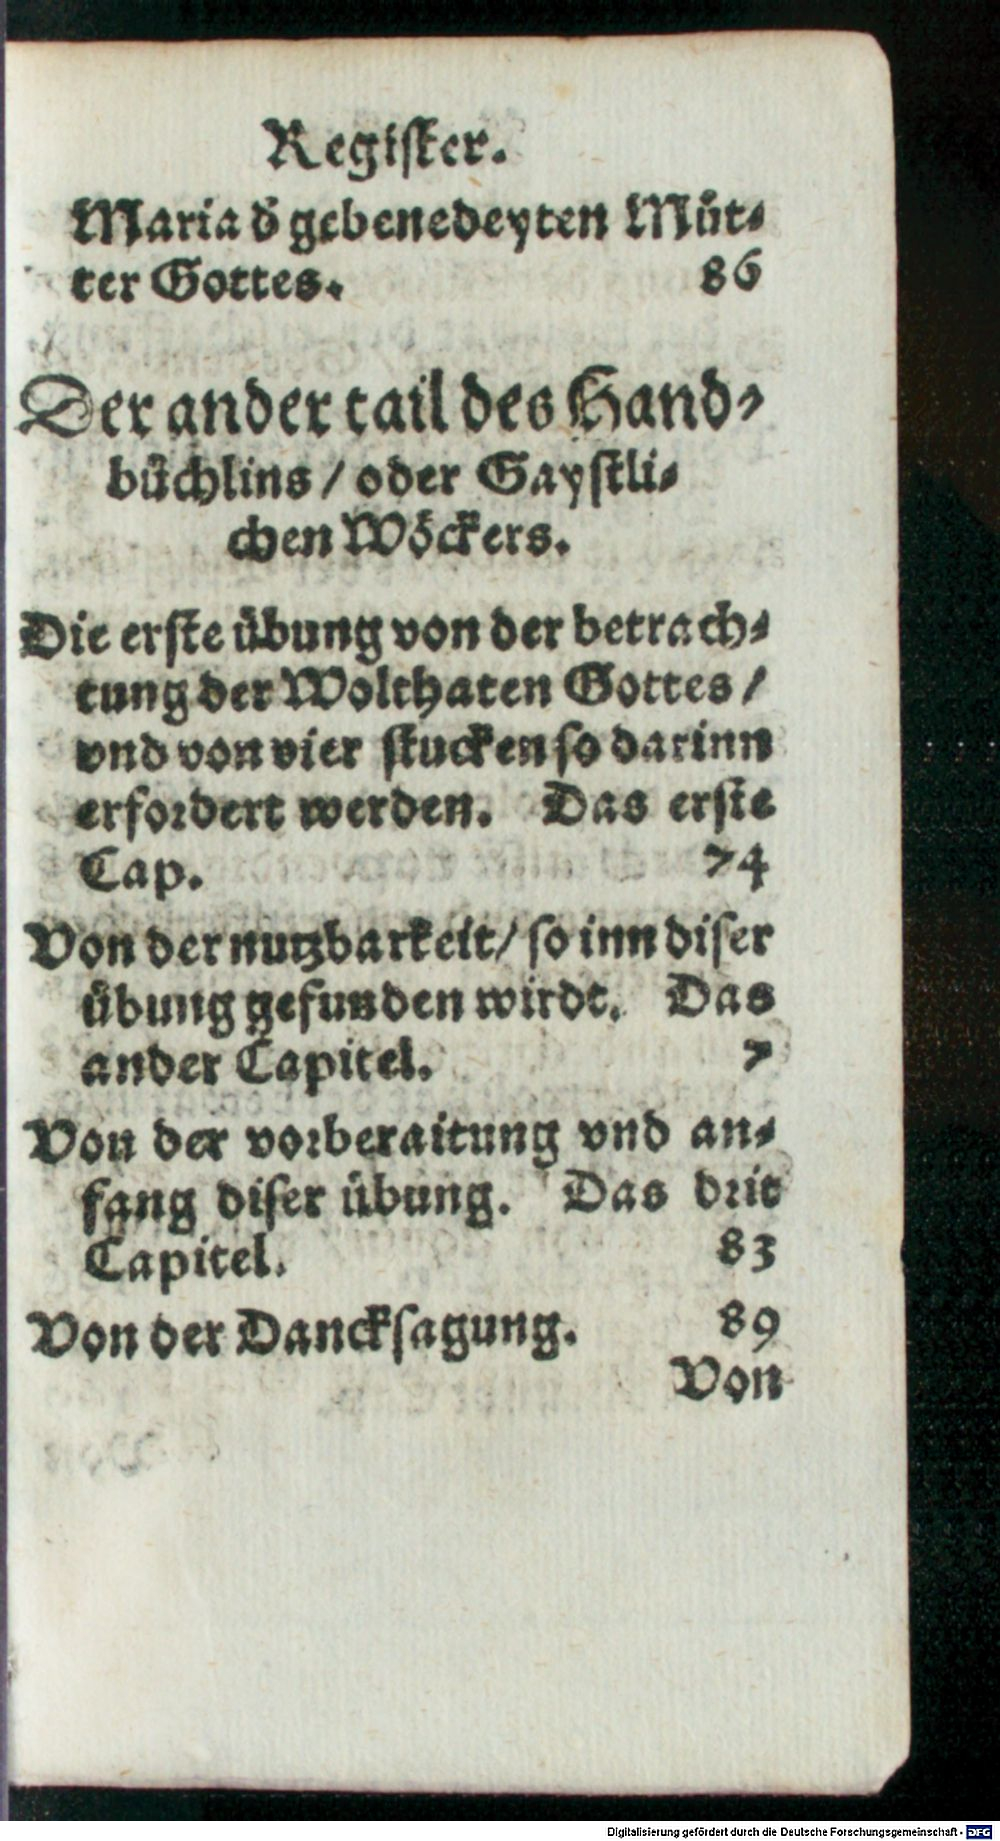 Regiſter.
Maria d̄ gebenedeyten Můt⸗
ter Gottes. 86
Der ander tail des Hand⸗
bůchlins / oder Gayſtli⸗
chen Wöckers.
Die erſte übung von der betrach⸗
tung der Wolthaten Gottes /
vnd von vier ſtucken ſo darinn
erfordert werden. Das erſte
Cap. 74
Von der nutzbarkeit / ſo inn diſer
übung gefunden wirdt. Das
ander Capitel. 7
Von der vorberaitung vnd an⸗
fang diſer übung. Das drit
Capitel. 83
Von der Danckſagung. 89
Von
Digitalisierung gefördert durch die Deutsche Forschungsgemeinschaft - DFG